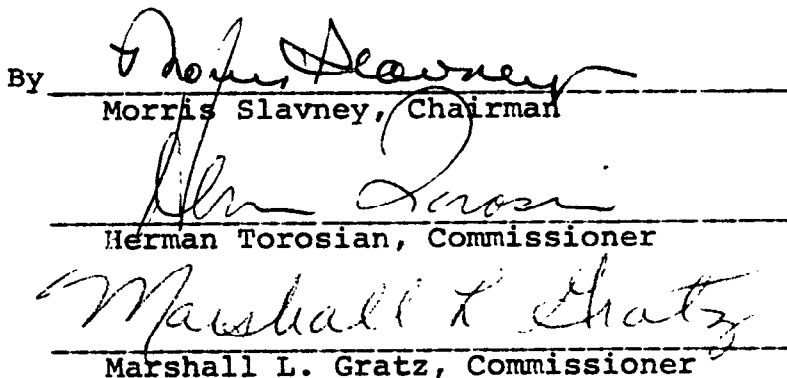 By Morris Slavney
Morris Slavney, Chairman
Herman Torosian
Herman Torosian, Commissioner
Marshall L Gratz
Marshall L. Gratz, Commissioner